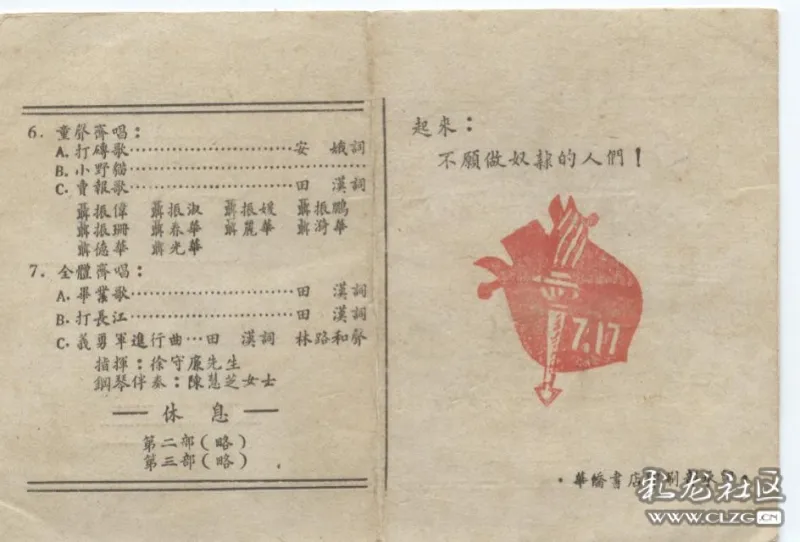 6. 童聲齊唱：
A. 打磚歌……………………安 娥詞
B. 小野貓……………………………
C. 賣報歌……………………田 漢詞
聶振偉 聶振淑 聶振媛 聶振鵬
聶振珊 聶春華 聶麗華 聶漪華
聶德華 聶光華
7. 全體齊唱：
A. 畢業歌……………………田 漢詞
B. 打長江……………………田 漢詞
C. 義勇軍進行曲…田 漢詞 林路和聲
指揮：徐守廉先生
鋼琴伴奏：陳慧芝女士
休 息
第二部（略）
第三部（略）
起來：
不願做奴隸的人們！
7.17
·華僑書店
私龙社区
WWW.CLZG.CN